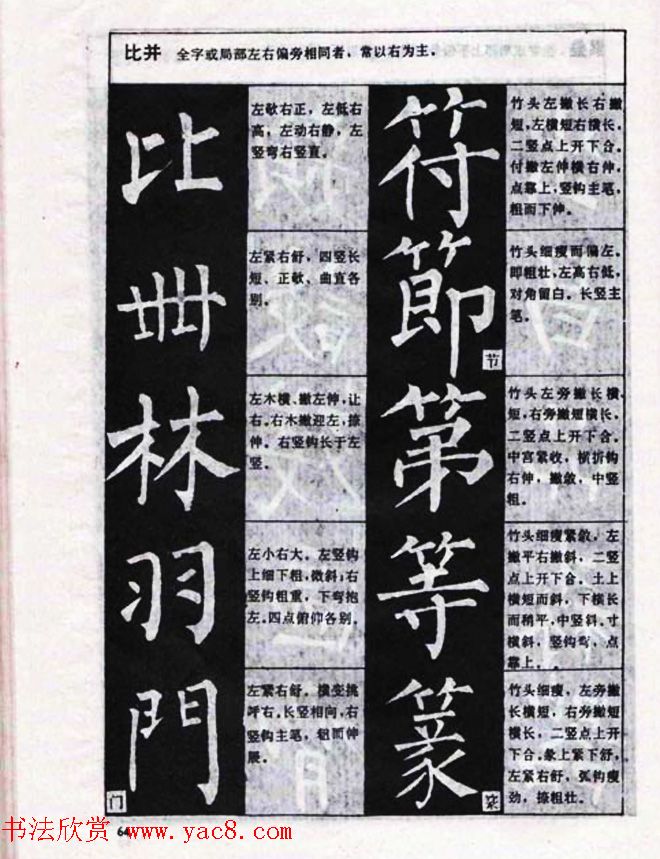 比并 全字或局部左右偏旁相同者，常以右为主。
比
左欹右正，左低右
高，左动右静，左
竖弯右竖直。
卌
左紧右舒，四竖长
短、正欹、曲直各
别。
林
左木横、撇左伸，让
右。右木撇迎左，捺
伸。右竖钩长于左
竖。
羽
左小右大。左竖钩
上细下粗，微斜；右
竖钩粗重，下弯抱
左。四点俯仰各别。
門
门
左紧右舒。横变挑
呼右。长竖相向，右
竖钩主笔，粗而伸
展。
符
竹头左撇长右撇
短，左横短右横长，
二竖点上开下合。
付撇左伸横右伸，
点靠上，竖钩主笔，
粗而下伸。
節
节
竹头细瘦而偏左。
即粗壮，左高右低，
对角留白。长竖主
笔。
第
竹头左旁撇长横
短，右旁撇短横长，
二竖点上开下合。
中宫紧收，横折钩
右伸，撇敛，中竖
粗。
等
竹头细瘦紧敛，左
撇平右撇斜，二竖
点上开下合。土上
横短而斜，下横长
而稍平，中竖斜。寸
横斜，竖钩弯，点
靠上。
篆
竹头细瘦，左旁撇
长横短，右旁撇短
横长，二竖点上开
下合。彖上紧下舒，
左紧右舒，弧钩瘦
劲，捺粗壮。
64
书法欣赏 www.yac8.com